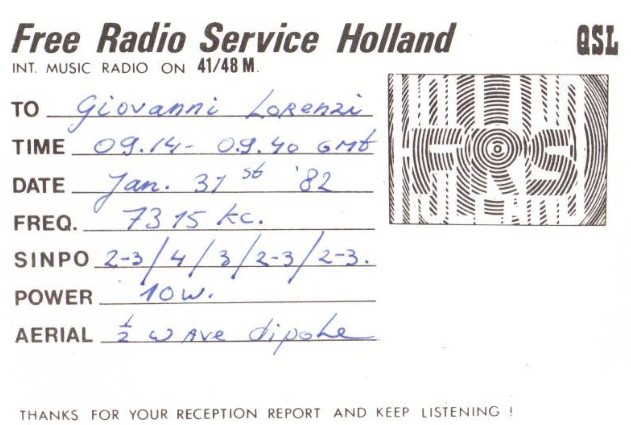 Free Radio Service Holland QSL
INT. MUSIC RADIO ON 41/48 M.
TO Giovanni Lorenzi
TIME 09.14- 09.40 GMT
DATE Jan. 31st '82
FREQ. 7315 kc.
SINPO 2-3/4/3/2-3/2-3.
POWER 10w.
AERIAL ½ wave dipole
FRS
HOLLAND
THANKS FOR YOUR RECEPTION REPORT AND KEEP LISTENING !